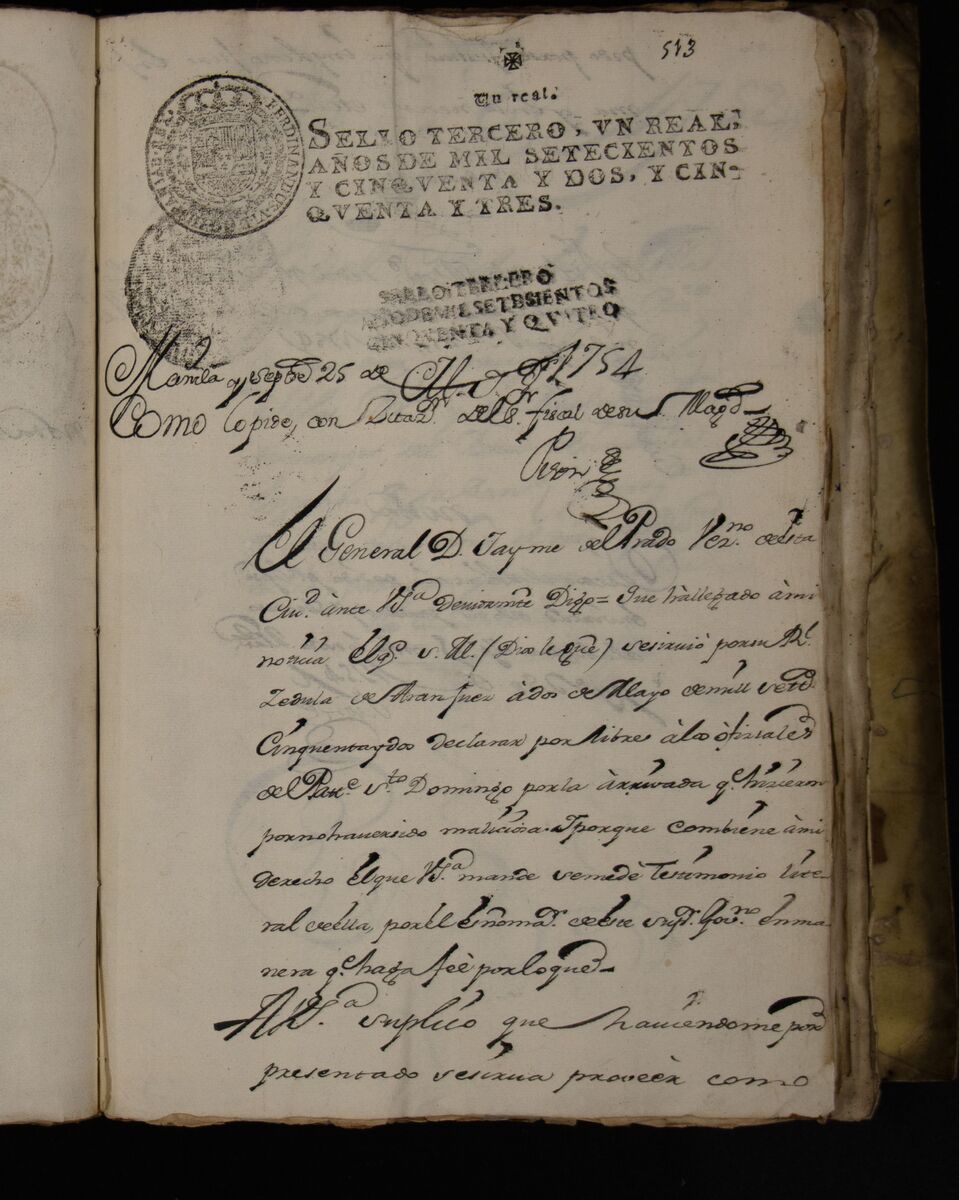 513
Un real.
SELLO TERCERO, VN REAL,
AÑOS DE MIL SETECIENTOS
Y CINQVENTA Y DOS, Y CIN-
QVENTA Y TRES.
SELLO TERCERO
AÑO DE MIL SETESIENTOS
CINQVENTA Y QVATRO
Manila y Septe 25 de 1754
Como lo pide, con Citazn del Sr fiscal de su Magd
El General D. Jayme del Prado Vezno de esta
Ciud ante VSa devidamte Digo= que ha llegado à mi
noticia el qe S. M. (Dios le gue) se sirviò por su Rl
Zedula de Aranjuez à dos de Mayo de mill setes
Cinquenta y dos declarar por libres à los òfisiales
del Pate Sto Domingo por la àrrivada qe hizieron
por no haver sido maliciosa. Y porque combiene à mi
derecho el que VSa mande se me dè Testimonio lite
ral de ella, por el Essno mor de este Supr Govno en ma
nera qe haga feè por lo que
A VSa suplico que haviendome por
presentado se sirva proveèr como